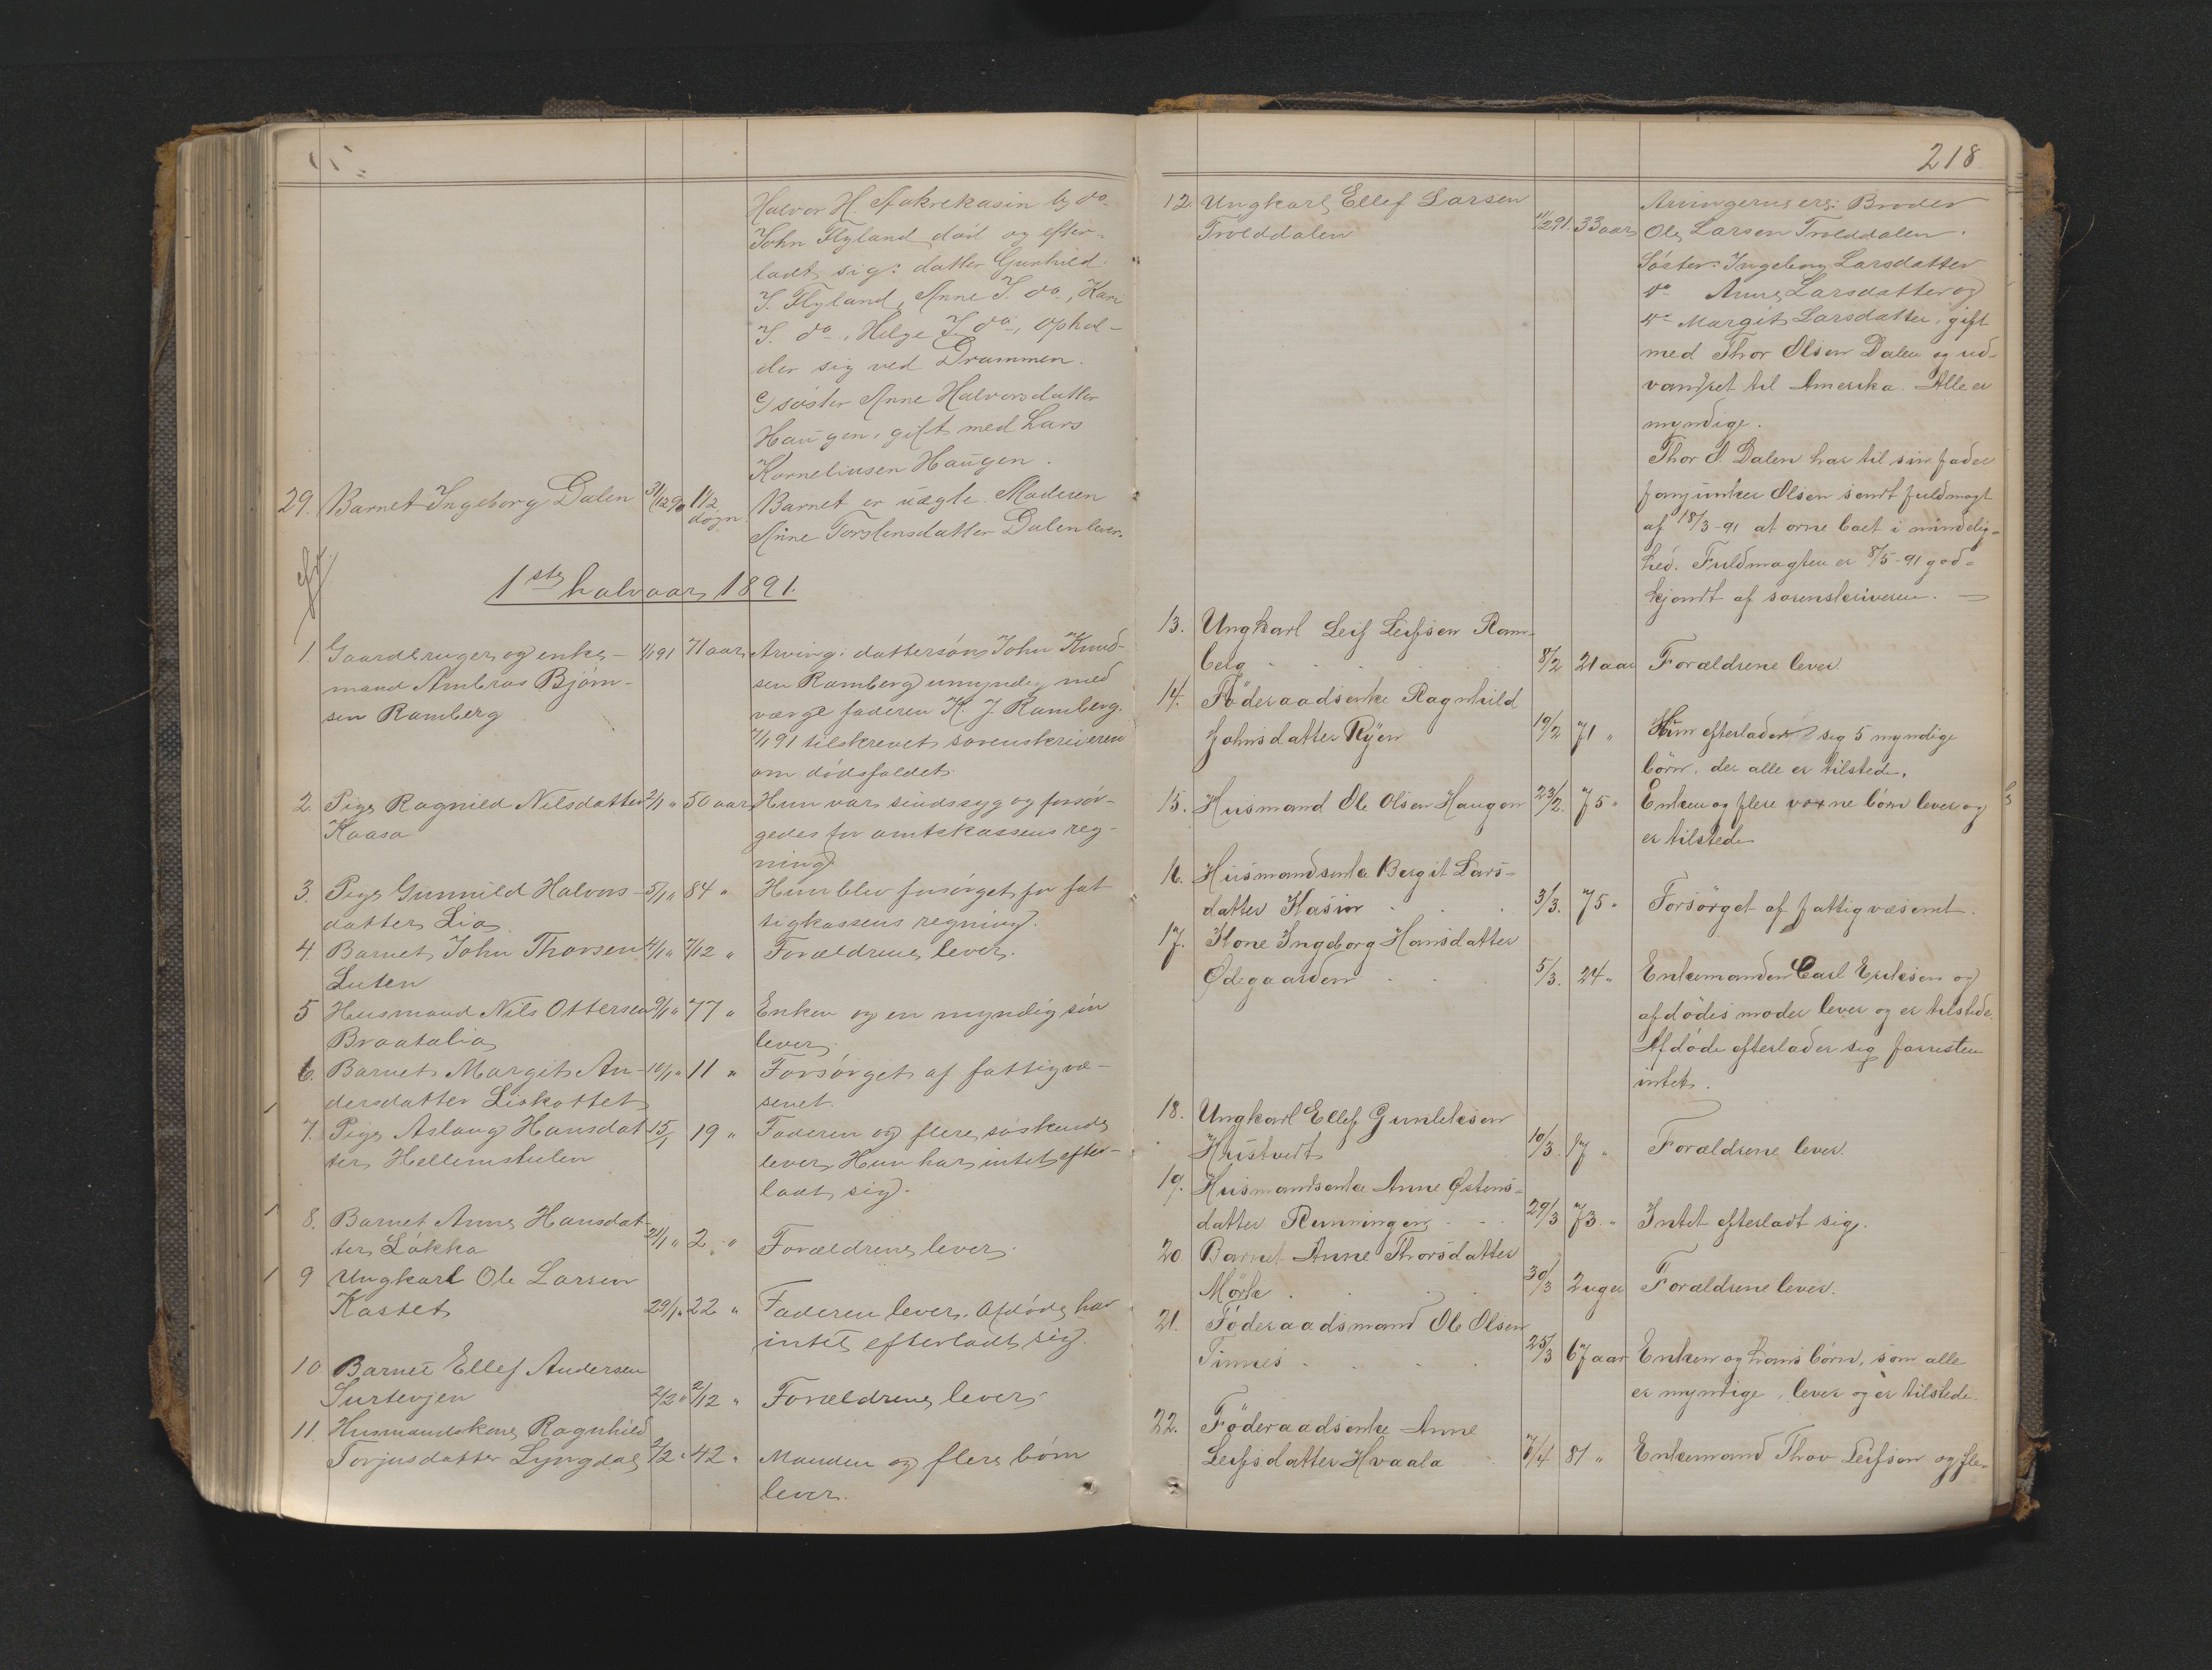 Halvor H. Aakrekasin b, do
John Flyland död og efter-
ladt sig: datter Gunhild
J. Flyland, Anne J. do, Kari
J. do, Helge J. do, ophol-
der sig ved Drammen.
c, søster Anne Halvorsdatter
Haugen, gift med Lars
Korneliusen Haugen.
29. Barnet Ingeborg Dalen 31/12 90 1 1/2 døgn. Barnet er uægte. Moderen
Anne Torstensdatter Dalen lever.
1ste halvaar 1891.
1. Gaardbruger og enke- 1/1 91 71 aar Arving: dattersøn John Knud-
mand Ambros Bjørn- sen Ramberg umyndig med
sen Ramberg værge faderen K. J. Ramberg.
7/1 91 tilskrevet sorenskriveren
om dödsfaldet.
2. Pige Ragnild Nilsdatter 2/1 " 50 aar Hun var sindssyg og forsør-
Kaasa gedes for amtskassens reg-
ning.
3. Pige Gunnild Halvors- 5/1 " 84 " Hun blev forsörget for fat-
datter Lia tigkassens regning.
4. Barnet John Thorsen 4/1 " 7/12 " Forældrene lever.
Luten
5 Husmand Nils Ottersen 9/1 " 77 " Enken og en myndig sön
Braatalia lever.
6. Barnet Margit An- 10/1 " 11 " Forsörget af fattigvæ-
dersdatter Liskottet senet.
7. Pige Aslaug Hansdat- 15/1 19 " Faderen og flere söskende
ter Hellemstulen lever. Hun har intet efter-
ladt sig.
8. Barnet Anne Hansdat-
ter Løkka 21/1 " 2 " Forældrene lever.
9 Ungkarl Ole Larsen
Kasset 29/1 " 22 " Faderen lever. Afdøde har
intet efterladt sig.
10 Barnet Ellef Andersen
Surtevjen 2/2 " 2/12 " Forældrene lever.
11. Husmandskone Ragnhild
Torjusdatter Lyngdal 2/2 " 42 " Manden og flere børn
lever.
218.
12. Ungkarl Ellef Larsen Arvingerne er: Broder
Trolddalen 11/2 91. 33 aar Ole Larsen Trolddalen.
Søster: Ingeborg Larsdatter
do Anne Larsdatter og
do Margit Larsdatter, gift
med Thor Olsen Dalen og ud-
vandret til Amerika. Alle er
myndige.
Thor O Dalen har til sin fader
Olsen sendt fuldmagt
af 18/3-91 at orne boet i mindelig-
hed. Fuldmagten er 8/5-91 god-
kjendt af sorenskriveren.
13. Ungkarl Leif Leifsen Ram-
berg 8/2 21 aar Forældrene lever.
14. Föderaadsenke Ragnhild
Johnsdatter Ryen 19/2 71 " Hun efterlader sig 5 myndige
börn, der alle er tilstede.
15. Husmand Ole Olsen Haugen 23/2. 75 " Enken og flere voxne börn lever og
er tilstede
16. Husmandsenke Bergit Lars-
datter Kasin 3/3. 75 " Forsörget af fattigvæsenet.
17. Kone Ingeborg Hansdatter
Ødegaarden 5/3. 24 " Enkemanden Carl Eriksen og
afdödes moder lever og er tilstede.
Afdöde efterlader sig forresten
intet.
18. Ungkarl Ellef Gunleksen
Hustvedt 10/3 17 " Forældrene lever.
19. Husmandsenke Anne Østens-
datter Runningen 29/3 73. " Intet efterladt sig.
20. Barnet Anne Thorsdatter
Mörk 30/3 2 uger Forældrene lever.
21. Föderaadsmand Ole Olsen
Tinnes 25/3 67 aar Enken og hans börn, som alle
er myndige, lever og er tilstede.
22. Föderaadsenke Anne
Leifsdatter Hvaala 7/4 81 " Enkemand Thov Leifson og fle-